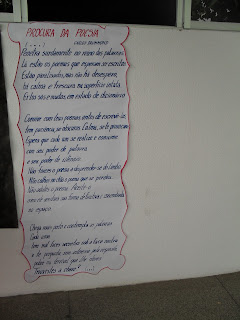 PROCURA DA POESIA
(.....)
Penetra surdamente no reino das palavras.
Lá estão os poemas que esperam ser escritos.
Estão paralisados, mas não há desespero,
há calma e frescura na superfície intata.
Ei-los sós e mudos, em estado de dicionário.
Convive com teus poemas, antes de escrevê-los.
Tem paciência, se obscuros. Calma, se te provocam.
Espera que cada um se realize e consuma
com seu poder de palavra
e seu poder de silêncio.
Não forces o poema a desprender-se do limbo.
Não colhas no chão o poema que se perdeu.
Não adules o poema. Aceita-o
como ele aceitará sua forma definitiva e concentrada
no espaço.
Chega mais perto e contempla as palavras.
Cada uma
tem mil faces secretas sob a face neutra
e te pergunta, sem interesse pela resposta,
pobre ou terrível que lhe deres:
Trouxeste a chave? (....)